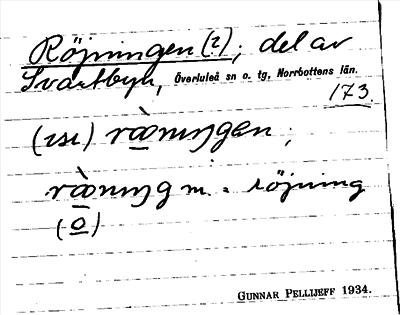 Röjningen (?), del av
Svartbyn, Överluleå sn o. tg, Norrbottens län.
173.
(ɪsɪ) ræ̀niŋgen ;
ræ̀niŋg m. = röjning
(o)
GUNNAR PELLIJEFF 1934.